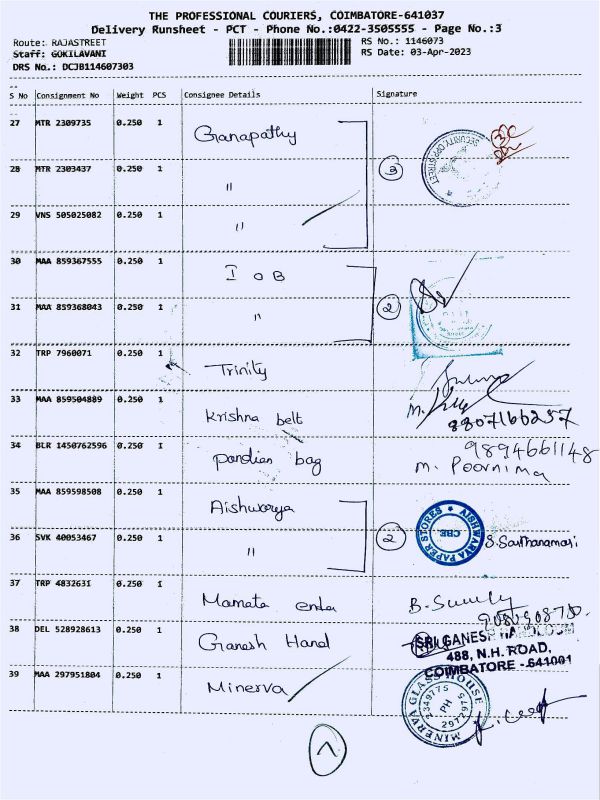 THE PROFESSIONAL COURIERS, COIMBATORE-641037
Delivery Runsheet - PCT - Phone No.:0422-3505555 - Page No.:3
Route: RAJASTREET RS No.: 1146073
Staff: GOKILAVANI RS Date: 03-Apr-2023
DRS No.: DCJB114607303
S No Consignment No Weight PCS Consignee Details Signature
27 MTR 2309735 0.250 1 Ganapathy
28 MTR 2303437 0.250 1 " 3
29 VNS 505025082 0.250 1 "
30 MAA 859367555 0.250 1 I O B
31 MAA 859368043 0.250 1 " 2
32 TRP 7960071 0.250 1 Trinity
33 MAA 859504889 0.250 1 Krishna belt 8807166257
34 BLR 1450762596 0.250 1 pandian bag 9894661148
M. Poornima
35 MAA 859598508 0.250 1 Aishwarya AISHWARIA PAPER STORES CBE
36 SVK 40053467 0.250 1 " 2
37 TRP 4832631 0.250 1 Mamata
38 DEL 528928613 0.250 1 Ganesh Hand SRI GANESH HANDLOOM
488, N.H. ROAD,
COIMBATORE - 641001
39 MAA 297951804 0.250 1 Minerva MINERVA GLASS HOUSE
PH
2349775